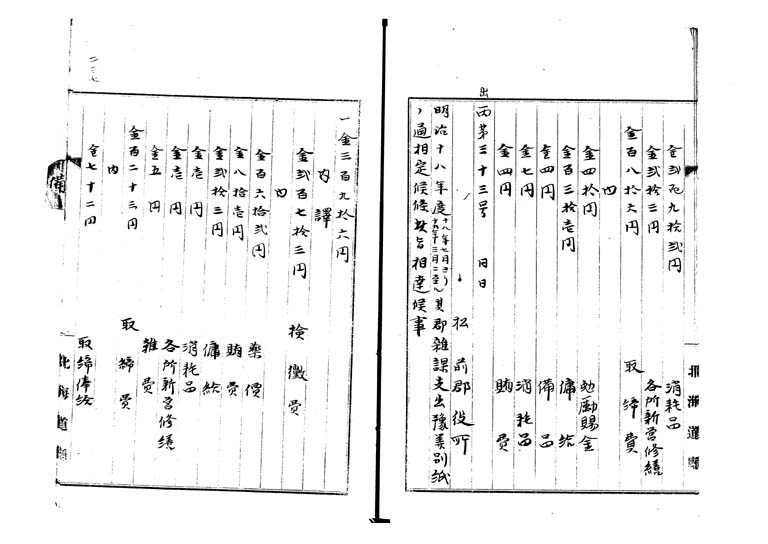 金弐百九拾弐円 消耗品
金弐拾三円 各所新営修繕
金百八拾六円 取締費
内
金四拾円 勉励賜金
金百三拾壱円 傭給
金四円 備品
金七円 消耗品
金四円 賄費
出
丙第三十三号 同日
松前郡役所
明治十八年度 其郡雑課支出豫算別紙
通相定候候此旨相達候事
北海道
一金三百九拾六円
内譯
金弐百七拾三円 検黴費
内
金百六拾弐円 薬價
金八拾壱円 賄費
金弐拾三円 傭給
金壱円 消耗品
金壱円 各所新営修繕
金五円 雑費
金百二十三円 取締費
内
金七十二円 取締俸給
備
北海道